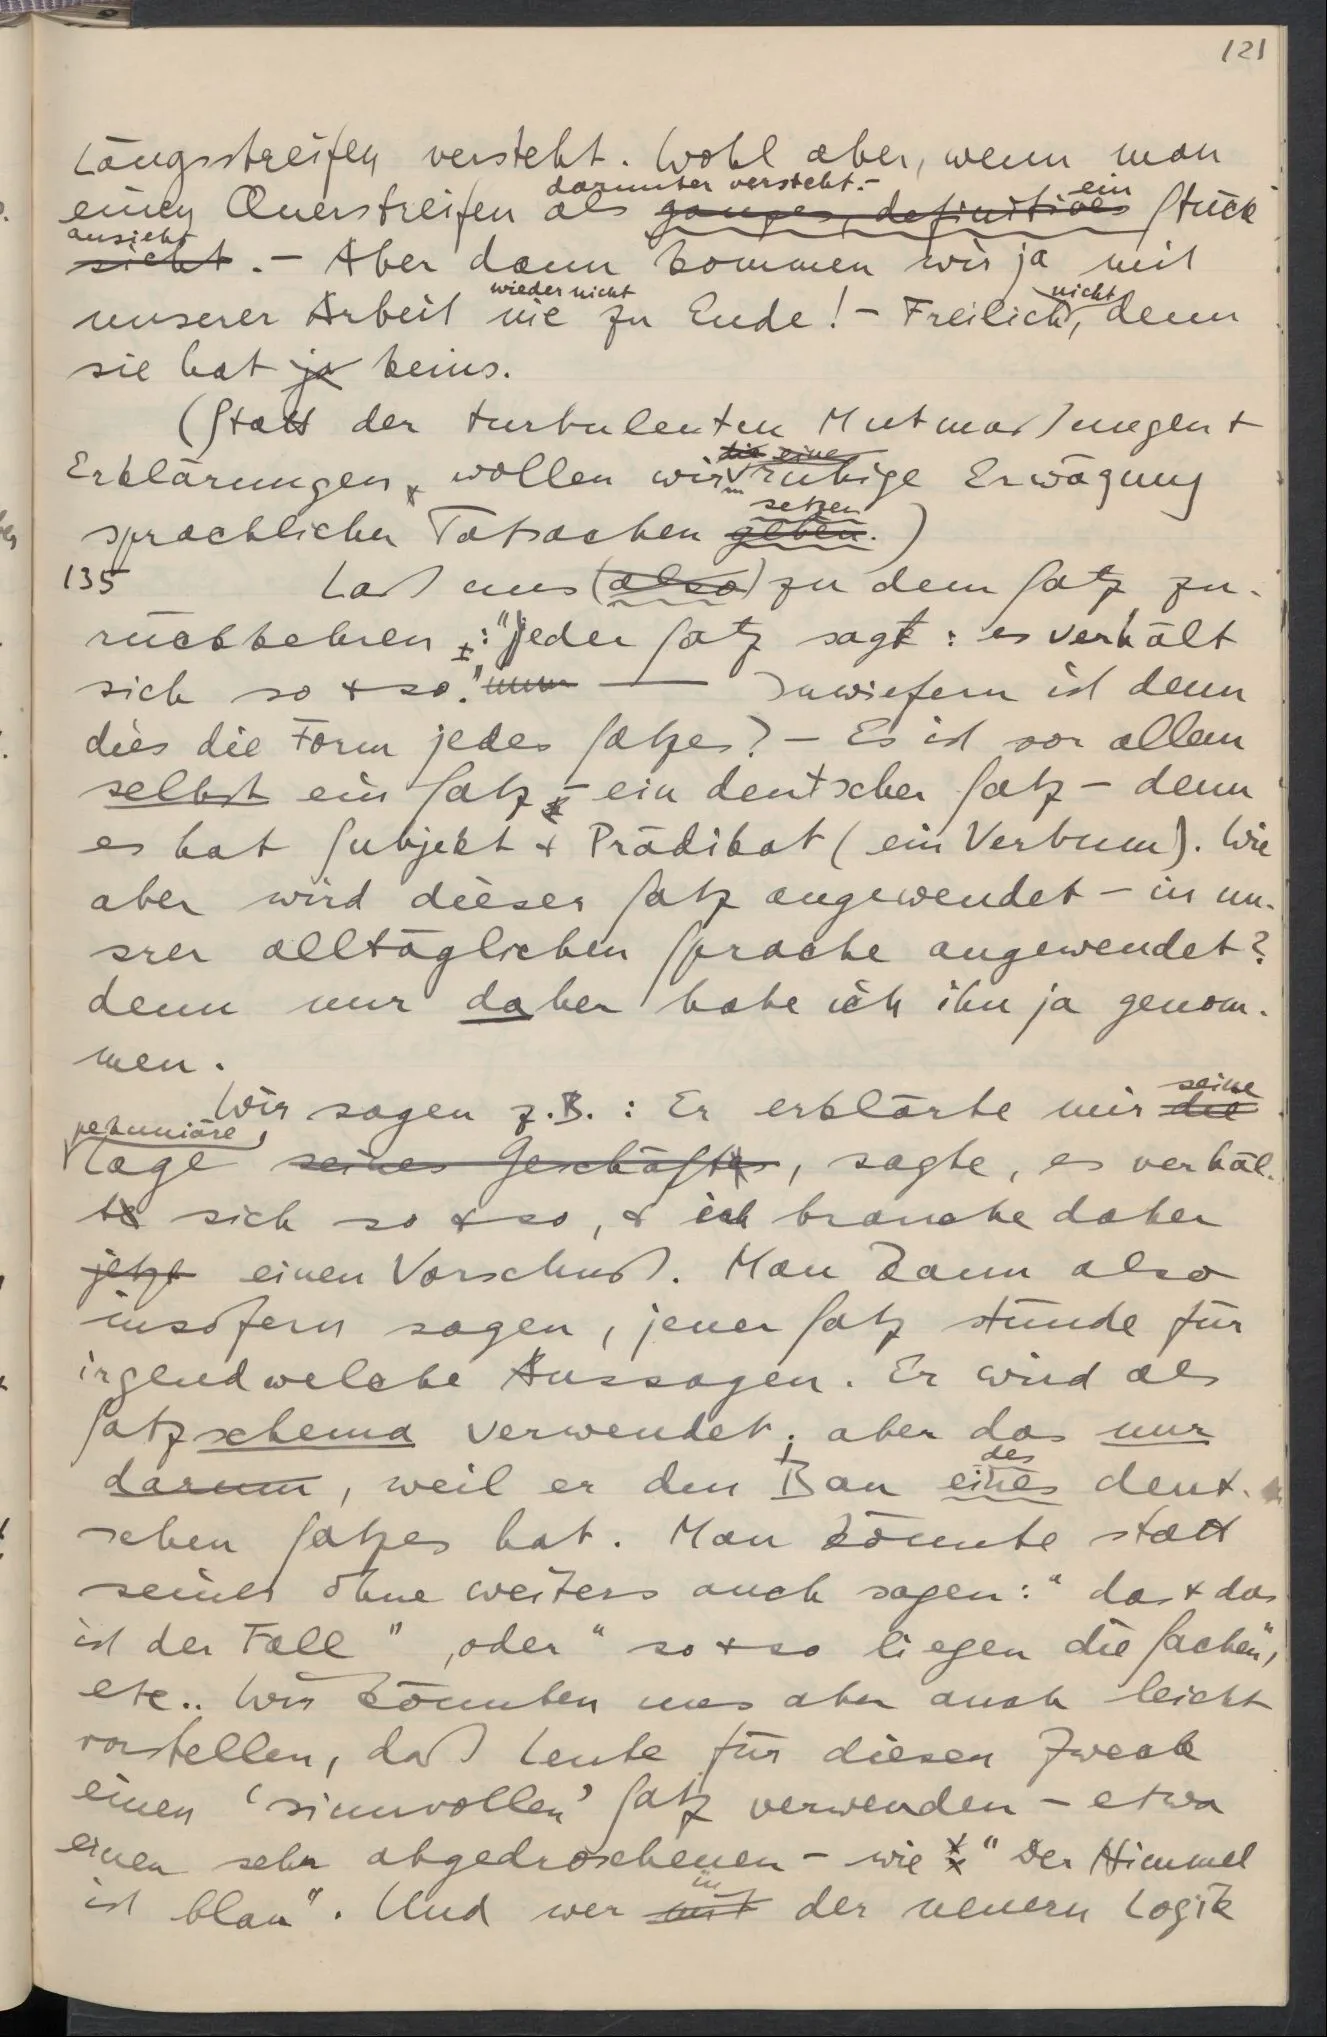 121
Längsstreifen versteht. Wohl aber, wenn man
darunter versteht.– ein
einen Querstreifen als ganzes, definitives Stück
ansieht
sieht. – Aber dann kommen wir ja mit
wieder nicht nicht
unserer Arbeit nie zu Ende! – Freilich, denn
sie hat ja keins.
(Statt der turbulenten Mutmaßungen +
die eine
Erklärungen, wollen wir ruhige Erwägung
setzen
sprachlicher Tatsachen geben.)
135 Laß uns (also) zu dem Satz zu-
rückkehren: "Jeder Satz sagt: es verhält
sich so + so." nun — Inwiefern ist denn
dies die Form jedes Satzes? – Es ist vor allem
selbst ein Satz – ein deutscher Satz – denn
es hat Subjekt + Prädikat (ein Verbum). Wie
aber wird dieser Satz angewendet – in un-
srer alltäglichen Sprache angewendet?
denn nur daher habe ich ihn ja genom-
men.
seine
Wir sagen z.B.: Er erklärte mir die
pekuniäre
Lage seines Geschäftes, sagte, es verhal-
te sich so + so, + ich brauche daher
jetzt einen Vorschuß. Man kann also
insofern sagen, jener Satz stünde für
irgendwelche Aussagen. Er wird als
Satzschema verwendet; aber das nur
des
darum, weil er den Bau eines deut-
schen Satzes hat. Man könnte statt
seiner ohne weiters auch sagen: "das + das
ist der Fall", oder "so + so liegen die Sachen",
etc.. Wir könnten uns aber auch leicht
vorstellen, daß Leute für diesen Zweck
einen 'sinnvollen' Satz verwenden – etwa
einen sehr abgedroschenen – wie "Der Himmel
in
ist blau". Und wer mit der neuern Logik